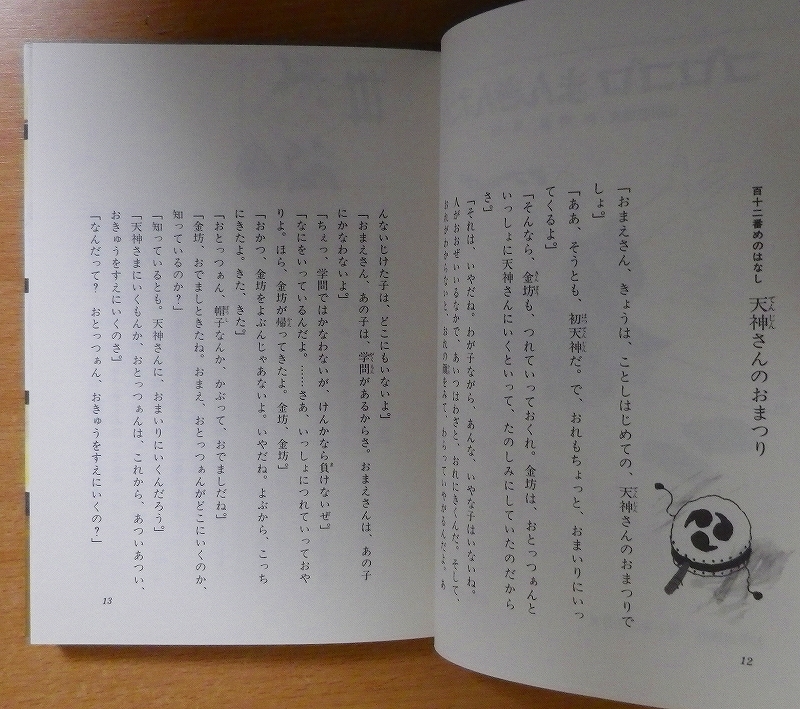 百十二番めのはなし
天神さんのおまつり
「おまえさん、きょうは、ことしはじめての、天神さんのおまつりで
しょ。」
「ああ、そうとも、初天神だ。で、おれもちょっと、おまいりにいっ
てくるよ。」
「そんなら、金坊も、つれていっておくれ。金坊は、おとっつぁんと
いっしょに天神さんにいくといって、たのしみにしていたのだから
さ。」
「それは、いやだね。わが子ながら、あんな、いやな子はいないね。
人がおおぜいいるなかで、あいつはわざと、おれにきくんだ。そして、
おれがわからないと、おれの顔をみて、わらっていやがるんだよ。あ
12
んないじけた子は、どこにもいないよ。」
「おまえさん、あの子は、学問があるからさ。おまえさんは、あの子
にかなわないよ。」
「ちぇっ、学問ではかなわないが、けんかなら負けないぜ。」
「なにをいっているんだよ。……さあ、いっしょにつれていっておや
りよ。ほら、金坊が帰ってきたよ。金坊、金坊。」
「おかつ、金坊をよぶんじゃあないよ。いやだね。よぶから、こっち
にきたよ。きた、きた。」
「おとっつぁん、帽子なんか、かぶって、おでましだね。」
「金坊、おでましときたね。おまえ、おとっつぁんがどこにいくのか、
知っているのか?」
「知っているとも。天神さんに、おまいりにいくんだろう。」
「天神さまにいくもんか、おとっつぁんは、これから、あついあつい、
おきゅうをすえにいくのさ。」
「なんだって? おとっつぁん、おきゅうをすえにいくの?」
13